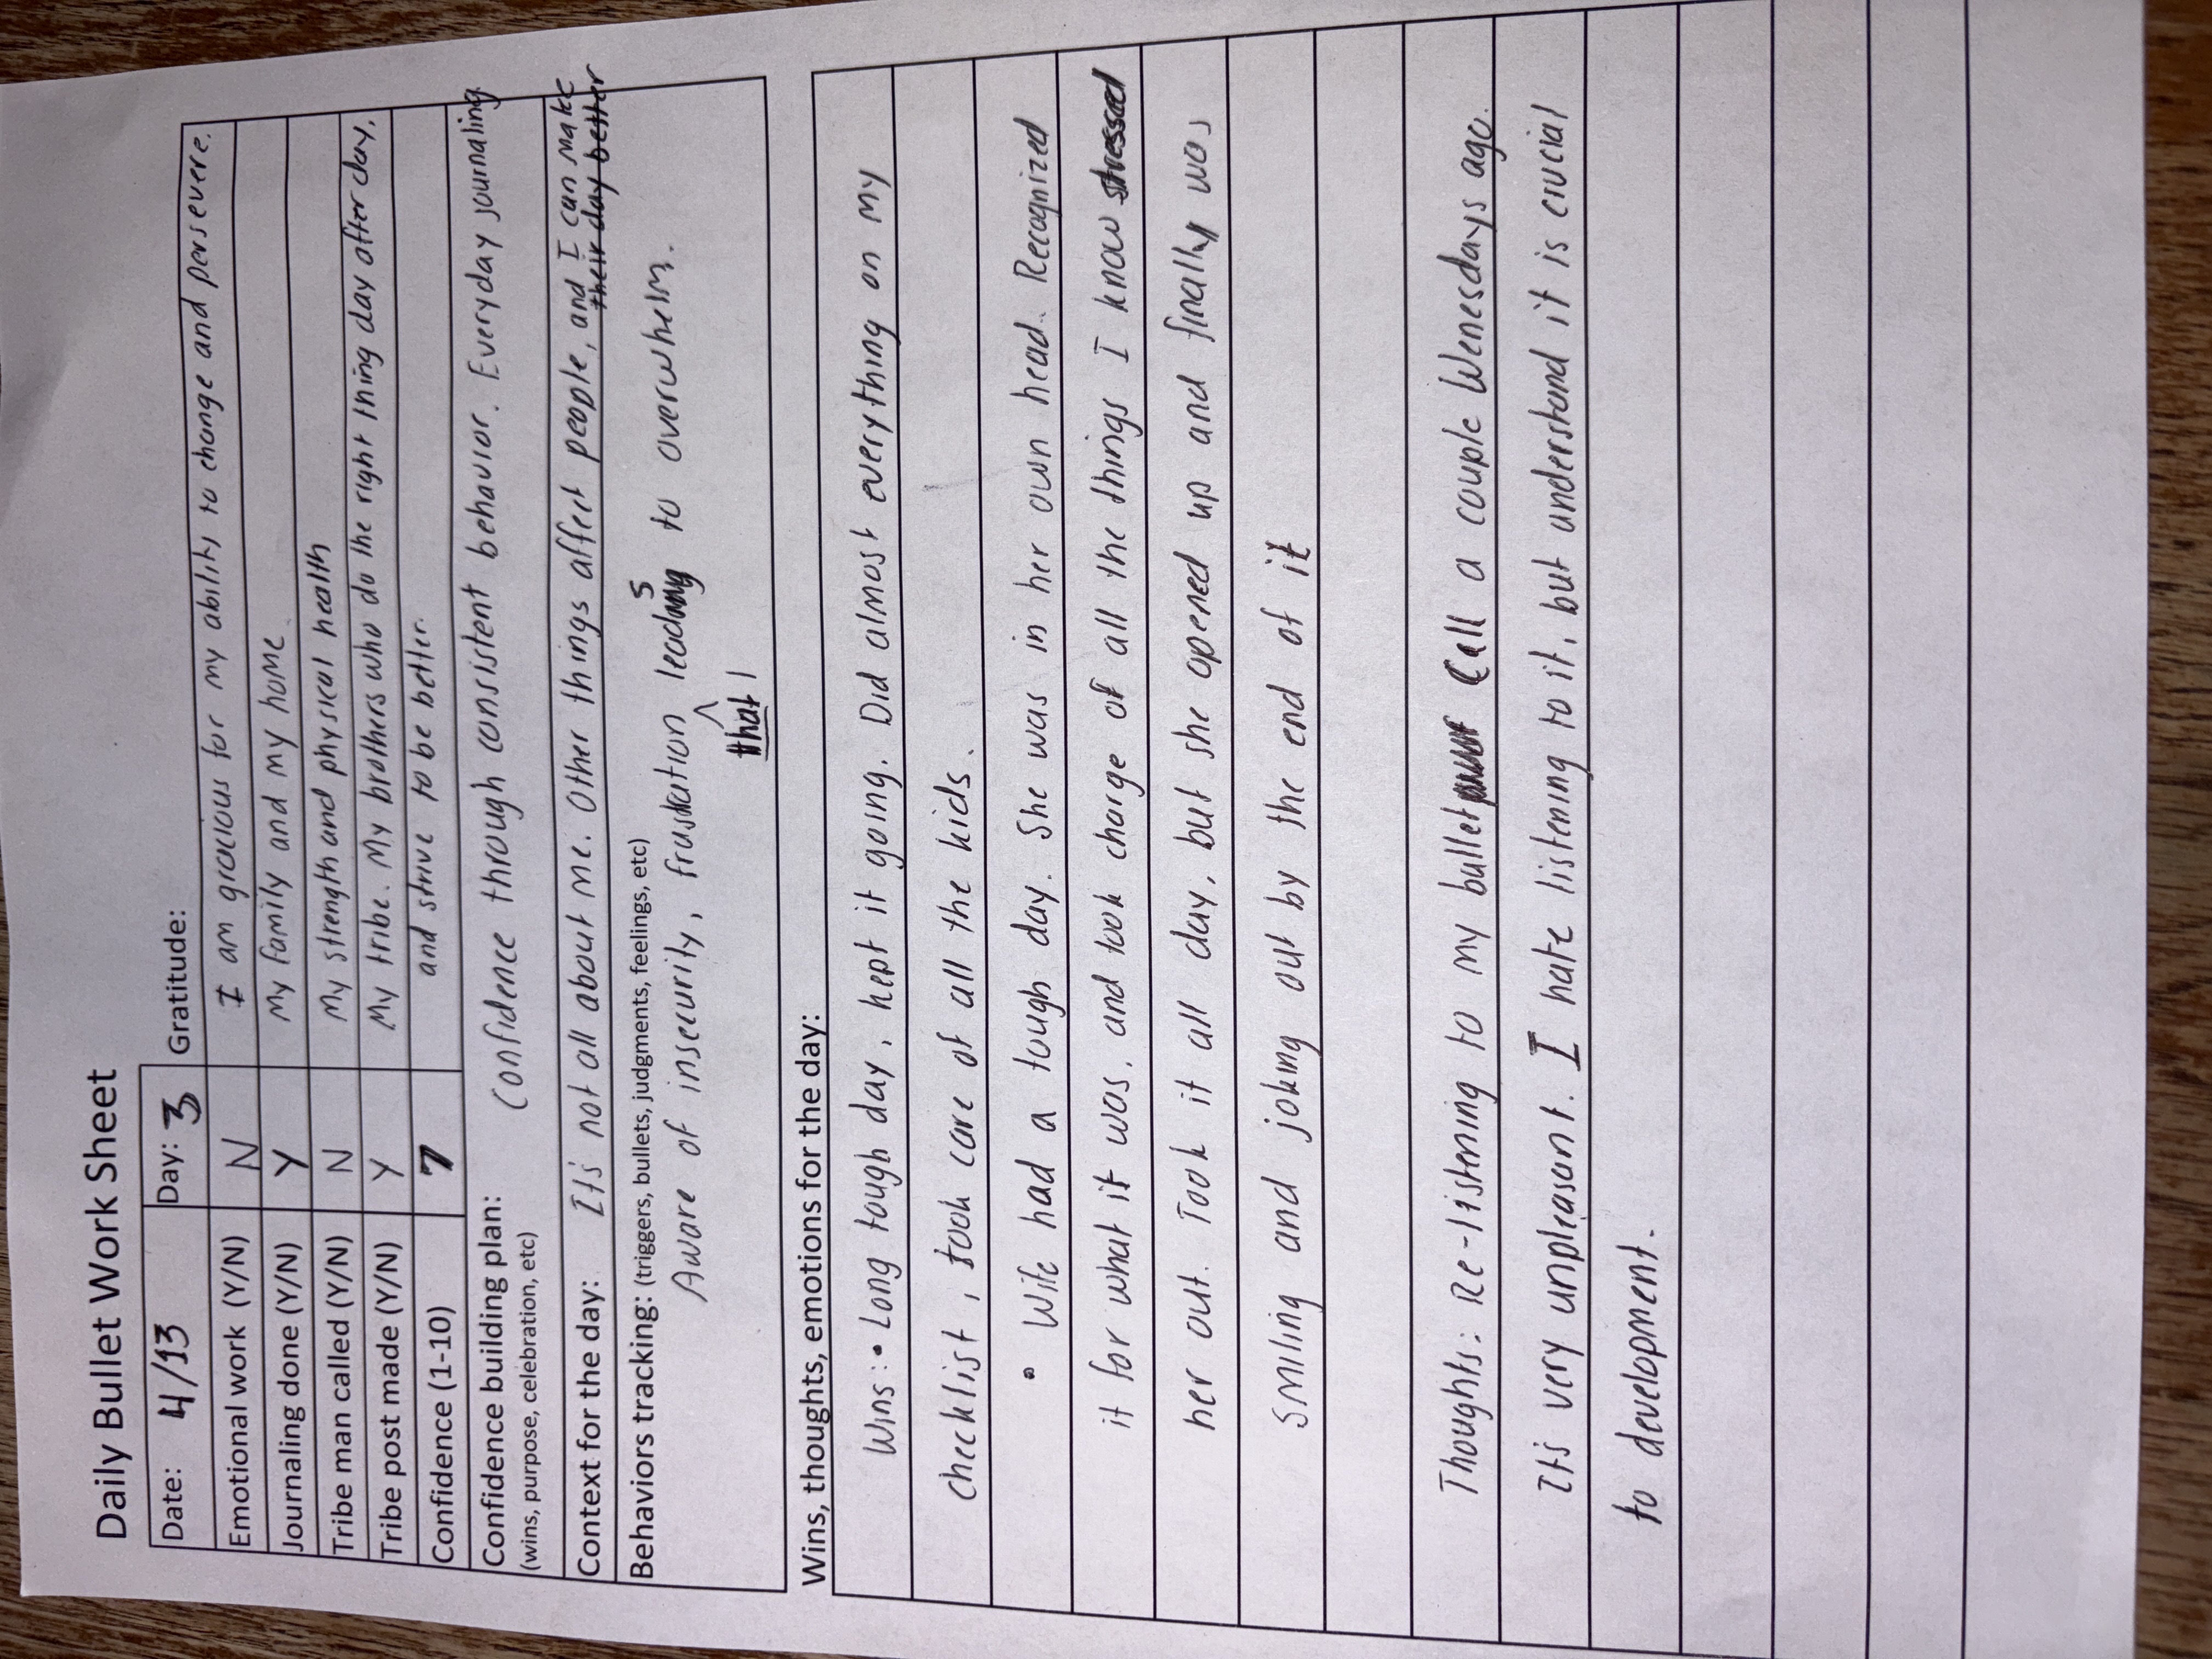 Daily Bullet Work Sheet
Date: 4/13 Day: 3 Gratitude:
Emotional work (Y/N) N I am gracious for my ability to change and persevere.
Journaling done (Y/N) Y My family and my home.
Tribe man called (Y/N) N My strength and physical health
Tribe post made (Y/N) Y My tribe. My brothers who do the right thing day after day,
Confidence (1-10) 7 and strive to be better.
Confidence building plan: Confidence through consistent behavior. Everyday journaling
(wins, purpose, celebration, etc)
Context for the day: It's not all about me. Other things affect people, and I can make
their day better
Behaviors tracking: (triggers, bullets, judgments, feelings, etc)
Aware of insecurity, frustration leads to overwhelm.
that
Wins, thoughts, emotions for the day:
Wins: • Long tough day, kept it going. Did almost everything on my
checklist, took care of all the kids.
• Wife had a tough day. She was in her own head. Recognized
it for what it was, and took charge of all the things I know stressed
her out. Took it all day, but she opened up and finally was
smiling and joking out by the end of it
Thoughts: Re-listening to my bullet Call a couple Wenesdays ago.
It's very unpleasant. I hate listening to it, but understand it is crucial
to development.